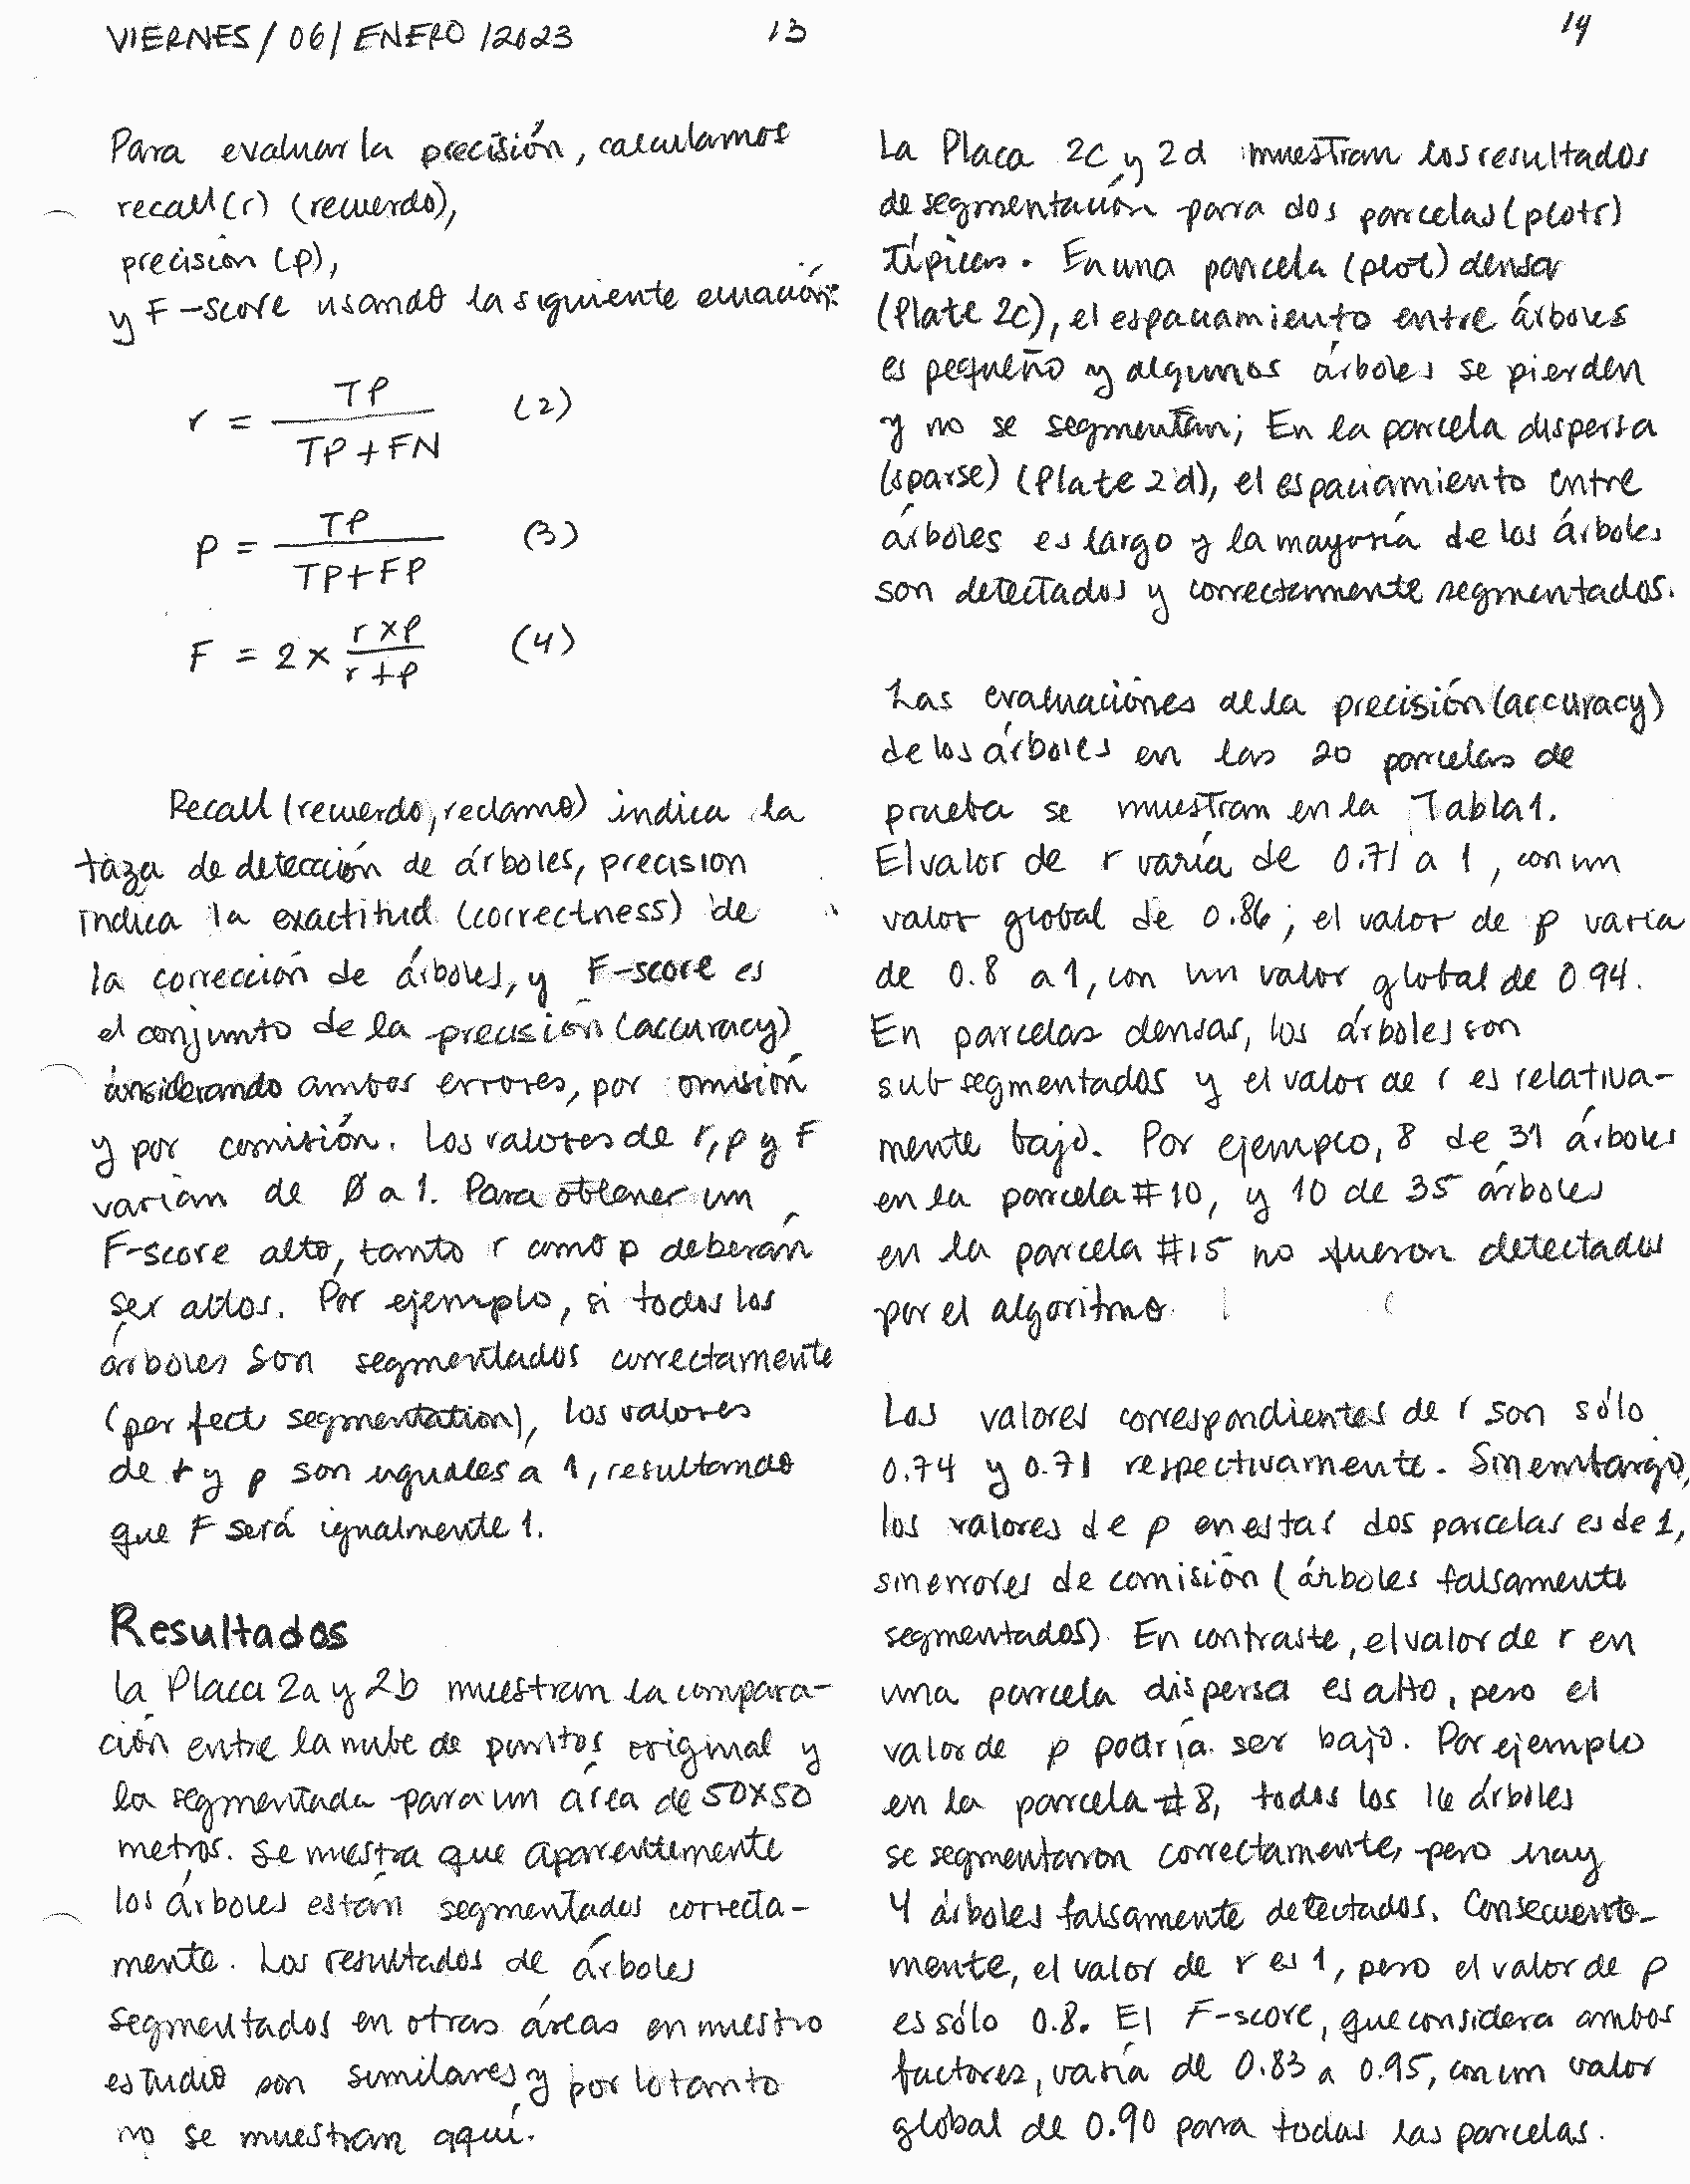 VIERNES / 06 / ENERO / 2023
13
Para evaluar la precisión, calculamos
recall (r) (recuerdo),
precision (p),
y F-score usando la siguiente ecuación:
r = TP / (TP + FN) (2)
p = TP / (TP + FP) (3)
F = 2 × (r × p) / (r + p) (4)
Recall (recuerdo, reclamo) indica la
taza de detección de árboles, precision
indica la exactitud (correctness) de
la corrección de árboles, y F-score es
el conjunto de la precisión (accuracy)
considerando ambos errores, por omisión
y por comisión. Los valores de r, p y F
varian de Ø a 1. Para obtener un
F-score alto, tanto r como p deberán
ser altos. Por ejemplo, si todos los
árboles son segmentados correctamente
(perfect segmentation), los valores
de r y p son iguales a 1, resultando
que F será igualmente 1.
Resultados
la Placa 2a y 2b muestran la compara-
ción entre la nube de puntos original y
la segmentada para un área de 50x50
metros. Se muestra que aparentemente
los árboles están segmentados correcta-
mente. Los resultados de árboles
segmentados en otras áreas en nuestro
estudio son similares y por lo tanto
no se muestran aquí.
14
La Placa 2c y 2d muestran los resultados
de segmentación para dos parcelas (plots)
típicas. En una parcela (plot) densa
(Plate 2c), el espaciamiento entre árboles
es pequeño y algunos árboles se pierden
y no se segmentan; En la parcela dispersa
(sparse) (Plate 2d), el espaciamiento entre
árboles es largo y la mayoría de los árboles
son detectados y correctamente segmentados.
Las evaluaciones de la precisión (accuracy)
de los árboles en las 20 parcelas de
prueba se muestran en la Tabla 1.
El valor de r varía de 0.71 a 1, con un
valor global de 0.86; el valor de p varía
de 0.8 a 1, con un valor global de 0.94.
En parcelas densas, los árboles son
sub segmentados y el valor de r es relativa-
mente bajo. Por ejemplo, 8 de 31 árboles
en la parcela #10, y 10 de 35 árboles
en la parcela #15 no fueron detectados
por el algoritmo
Los valores correspondientes de r son sólo
0.74 y 0.71 respectivamente. Sin embargo,
los valores de p en estas dos parcelas es de 1,
sin errores de comisión (árboles falsamente
segmentados). En contraste, el valor de r en
una parcela dispersa es alto, pero el
valor de p podría ser bajo. Por ejemplo
en la parcela #8, todos los 16 árboles
se segmentaron correctamente, pero hay
4 árboles falsamente detectados. Consecuente-
mente, el valor de r es 1, pero el valor de p
es sólo 0.8. El F-score, que considera ambos
factores, varía de 0.83 a 0.95, con un valor
global de 0.90 para todas las parcelas.